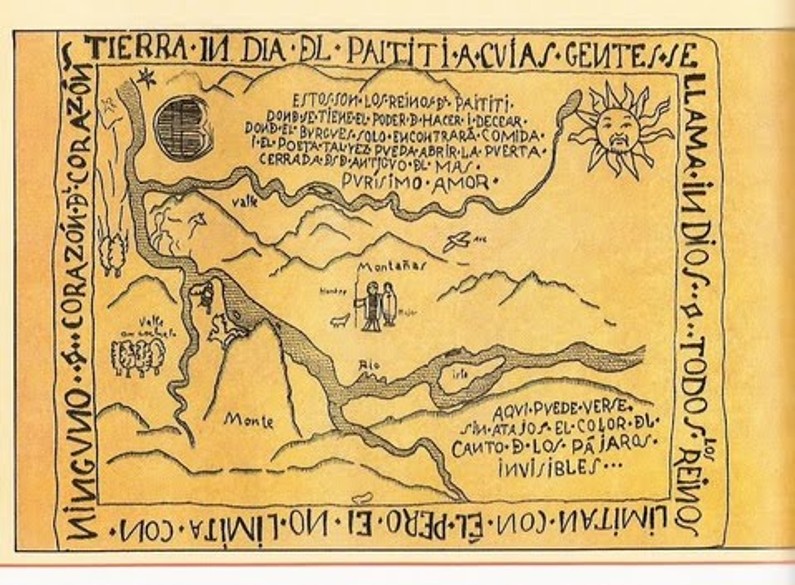 TIERRA·IN DIA·DL·PAITITI·A·CVIAS·GENTES·SE
LLAMA·INDIOS··D··TODOS·LOS REINOS
LIMITAN·CON·ÉL·PERO·EI·NO·LIMITA·CON·
NINGVNO··D··CORAZÓN·D·CORAZÓN S
ESTOS·SON·LOS·REINOS·D·PAITITI·
DOND·SE·TIENE·EL·PODER·D·HACER·I·DECEAR·
DOND·EL·BVRGVES·SOLO·ENCONTRARÁ·COMIDA·
I·EL·POETA·TAL·VEZ·PVEDA·ABRIR·LA·PVERTA·
CERRADA·DSD·ANTIGVO·DL·MAS·
PVRÍSIMO·AMOR·
Valle
Ave
Montañas
Hombre
Mujer
Valle
Río
isla
Monte
AQVI·PVEDE·VERSE·
SIN·ATAJOS·EL·COLOR·DL·
CANTO·D·LOS·PÁJAROS·
INVISIBLES...